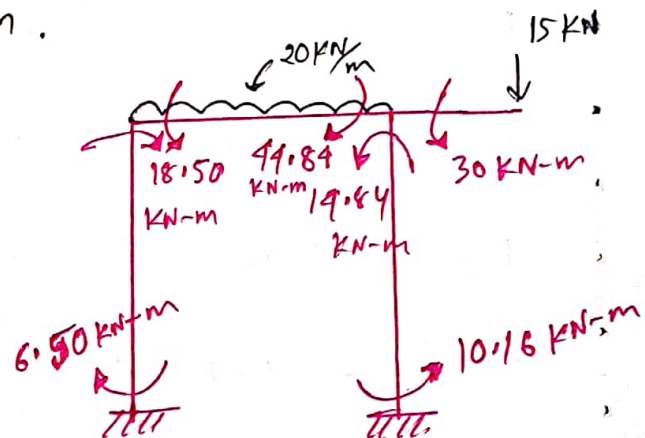 n.
15 KN
20 KN/m
18.50
KN-m
44.84
KN-m
14.84
KN-m
30 KN-m
6.50 KN-m
10.16 KN-m